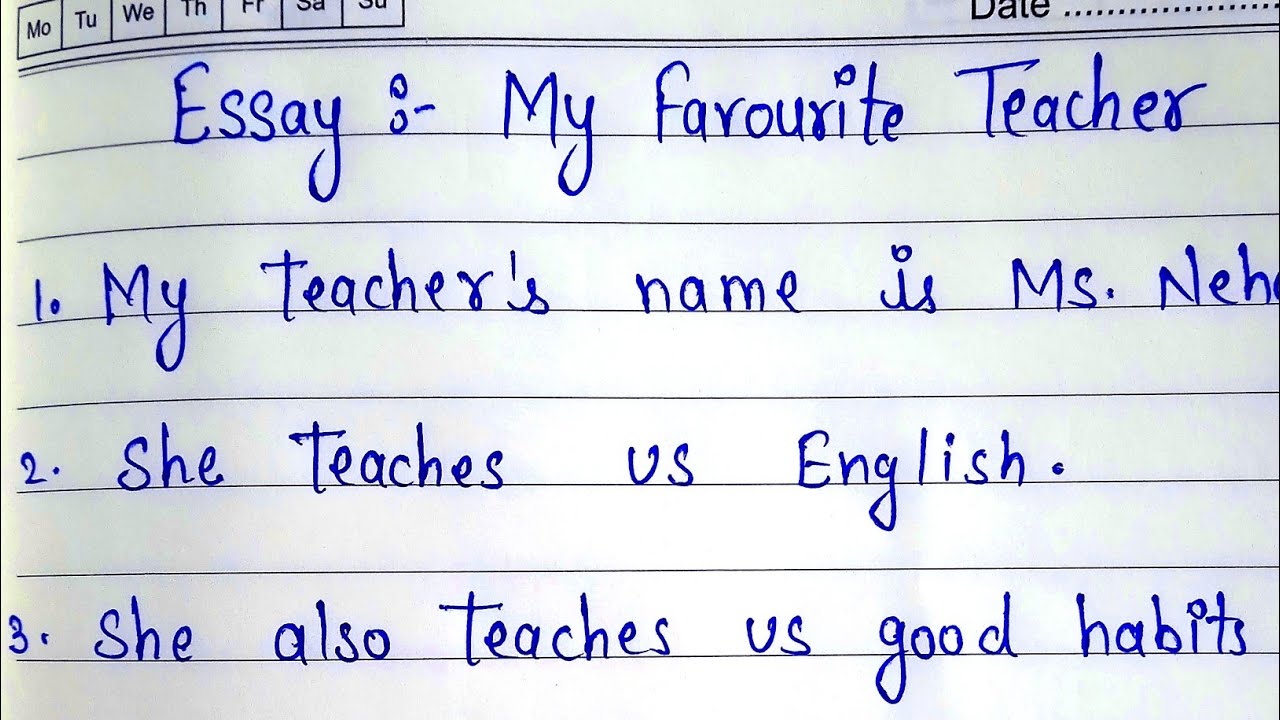 Mo Tu We Th Fr Sa Su
Date ....................
Essay :- My Favourite Teacher
1. My teacher's name is Ms. Neh
2. She teaches us English.
3. She also teaches us good habits